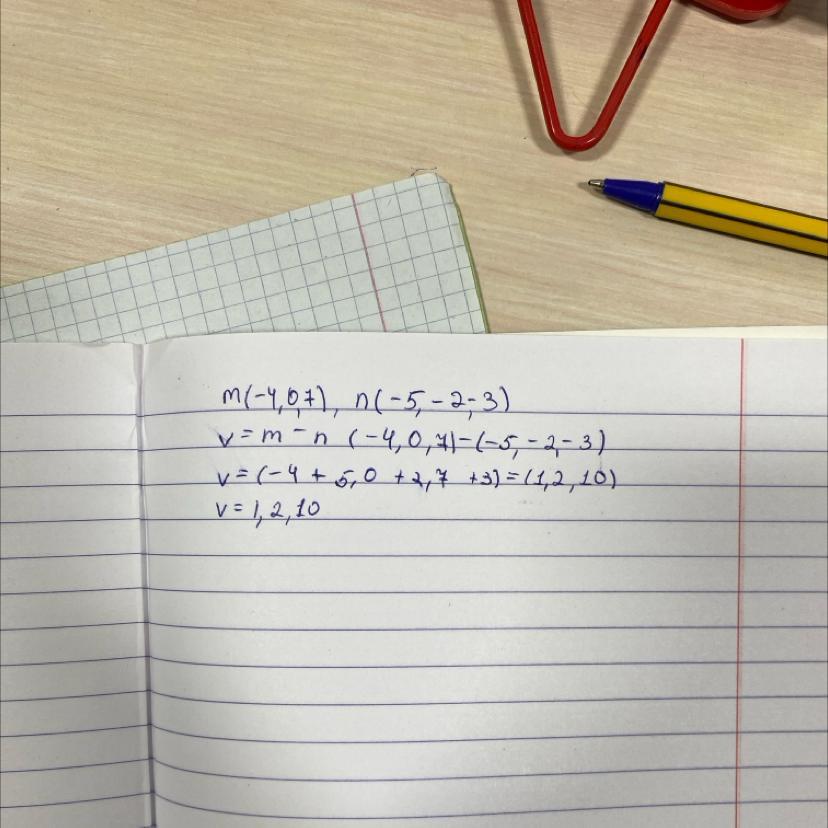 m(-4,0,7), n(-5,-2,-3)
v=m-n (-4,0,7)-(-5,-2,-3)
v=(-4+5,0+2,7+3)=(1,2,10)
v=1,2,10